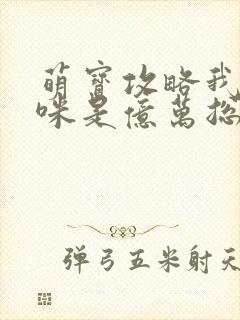 萌寶攻略我
咪是億萬總
弹弓五米射天